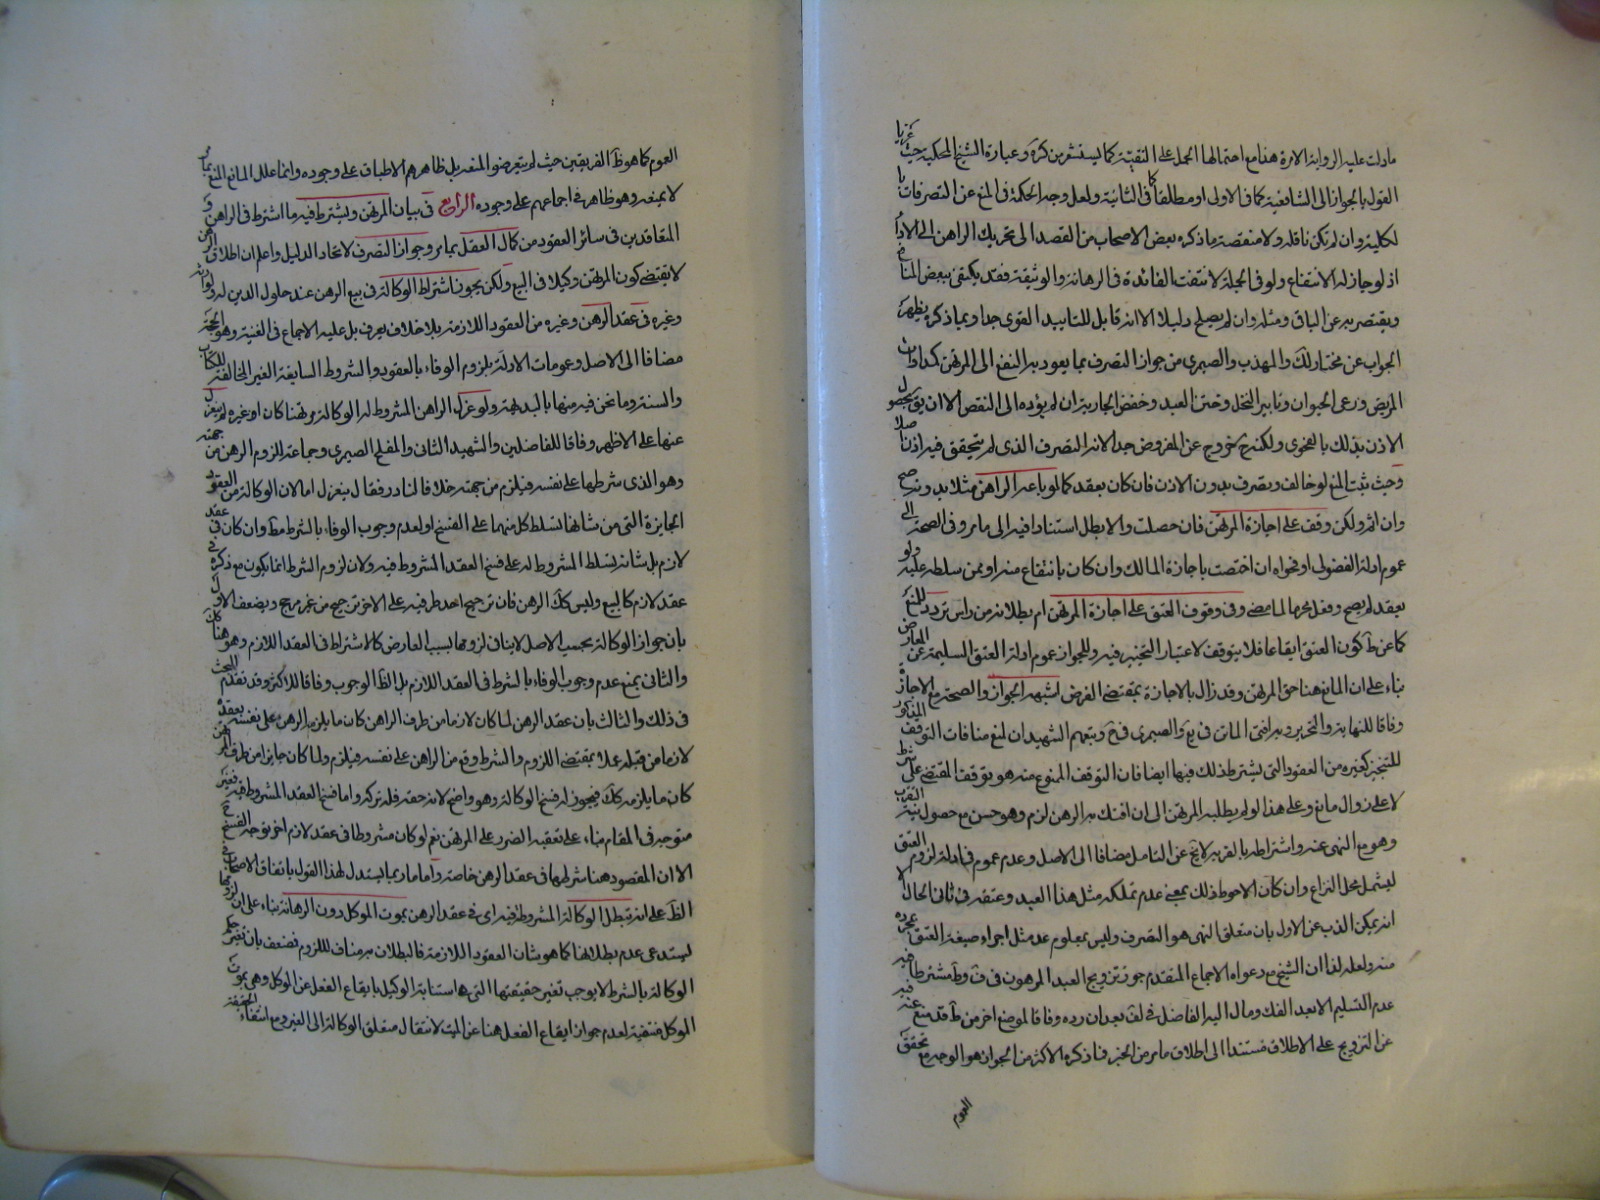 ما دلت عليه الرواية الامرة هنا مع احتمالها الحمل على التقية كما يستشعر من كره وعبارة الشيخ المحكية حيث عزيا
القول بالجواز الى الشافعية كما في الاولى او مطلقا كما في الثانية ولعل وجه الحكمة في المنع عن التصرفات
لكلية وان لم تكن ناقلة ولا منقصة ما ذكره بعض الاصحاب من القصد الى تحريك الراهن الى الاداء
اذ لو جاز له الانتفاع ولو في الجملة لانتفت الفائدة في الرهانة والوثيقة فقد يكتفى ببعض المنافع
ويقتصر به عن الباقي ومثله وان لم يصلح دليلا الا انه قابل للتاييد القوى جدا وبما ذكر يظهر
الجواب عن مختار لك والمهذب والصيمري من جواز التصرف بما يعود به النفع الى المرتهن كمداواة
المريض ورعى الحيوان وتابير النخل وختن العبد وخفض الجارية ان لم يؤده الى النقص الا ان يق بحصول
الاذن بذلك بالفحوى ولكنه ح خروج عن المفروض جدا لانه التصرف الذى لم يتحقق فيه اذن اصلا
وحيث ثبت المنع لو خالف وتصرف بدون الاذن فان كان بعقد كما لو باعه الراهن مثلا بدونه صح
وان اثم ولكن وقف على اجازة المرتهن فان حصلت والا بطل استنادا فيه الى ما مر وفى الصحة الى
عموم ادلة الفضولى او فحواه ان اختصت باجازة المالك وان كان بانتفاع منه او ممن سلطه عليه ولو
بعقد لم يصح وفعل محرما لما مضى وفى وقوف العتق على اجازة المرتهن ام بطلانه من راس تردد للمنع
كما عن ط كون العتق ايقاعا فلا يتوقف لاعتبار التنجيز فيه وللجواز عموم ادلة العتق السليمة عن المعارض
بناء على ان المانع هنا حق المرتهن وقد زال بالاجازة بمقتضى الفرض اشبهه الجواز والصحة مع الاجازة
وفاقا للنهاية والتحرير وبه افتى الماتن في يع والصيمرى في خ وتبعهم الشهيدان لمنع منافات التوقف المذكور
للتنجيز كغيره من العقود التى يشترط ذلك فيها ايضا فان التوقف الممنوع منه هو توقف المقتضى على شرط
لا على زوال مانع وعلى هذا لو لم يطلبه المرتهن الى ان افتك به الرهن لزم وهو حسن مع حصول نية القربة
وهو مع النهى عنه واشتراطه بالقربة لا يخ عن التامل مضافا الى الاصل وعدم عموم في ادلة لزوم العتق
ليشمل محل النزاع وان كان الاحوط ذلك بمعنى عدم تملكه مثل هذا العبد وعتقه في ثانى الحال الا
انه يمكن الذب عن الاول بان متعلق النهى هو التصرف وليس بمعلوم عد مثل اجراء صيغة العتق بمجرده
منه ولعله لذا ان الشيخ مع دعواه الاجماع المتقدم جوز تزويج العبد المرهون في ف وط مشترطا فيه
عدم التسليم الا بعد الفك ومال اليه الفاضل في لف بعد ان رده وفاقا لموضع اخر من ط قد منع فيه عنه
عن التزويج على الاطلاق مستندا الى اطلاق ما مر من الخبر فما ذكره الاكثر من الجواز هو الوجه مع تحقق
العموم
العموم كما هو ظ الفريقين حيث لم يتعرضوا لمنعه بل ظاهرهم الاطباق على وجوده وانما علل المانع المنع بما
لا يمنعه وهو ظاهر في اجماعهم على وجوده الرابع في بيان المرتهن ويشترط فيه ما اشترط في الراهن و
المتعاقدين في سائر العقود من كمال العقل بما مر وجواز التصرف لاتحاد الدليل واعلم ان اطلاق الرهن
لا يقتضى كون المرتهن وكيلا في البيع ولكن يجوز اشتراط الوكالة في بيع الرهن عند حلول الدين له ولوارثه
وغيره في عقد الرهن وغيره من العقود اللازمة بلا خلاف يعرف بل عليه الاجماع في الغنية وهو الحجة
مضافا الى الاصل وعمومات الادلة بلزوم الوفاء بالعقود والشروط السايغة الغير المخالفة للكتاب
والسنة وما نحن فيه منها بالبديهة ولو عزل الراهن المشروط له الوكالة مرتهنا كان او غيره لم ينعزل
عنها على الاظهر وفاقا للفاضلين والشهيد الثانى والمفلح الصيمرى وجماعة للزوم الرهن من جهته
وهو الذى شرطها على نفسه فيلزم من جهته خلافا لنادر فقال ينعزل اما لان الوكالة من العقود
الجايزة التى من شانها تسلط كل منهما على الفسخ او لعدم وجوب الوفاء بالشرط مط وان كان في عقد
لازم بل شانه تسلط المشروط له على فسخ العقد المشروط فيه ولان لزوم الشرط انما يكون مع ذكره في
عقد لازم كالبيع وليس كك الرهن فان ترجيح احد طرفيه على الاخر ترجيح من غير مرجح ويضعف الاول
بان جواز الوكالة بحسب الاصل لا ينافى لزومها بسبب العارض كالاشتراط في العقد اللازم وهو هنا كك
والثانى بمنع عدم وجوب الوفاء بالشرط في العقد اللازم بل الظ الوجوب وفاقا للاكثر وقد تقدم البحث
في ذلك والثالث بان عقد الرهن لما كان لازما من طرف الراهن كان ما يلزمه الرهن على نفسه بعقده
لازما من قبله عملا بمقتضى اللزوم والشرط وقع من الراهن على نفسه فيلزم ولما كان جايزا من طرف المرتهن
كان ما يلزمه كك فيجوز له فسخ الوكالة وهو واضح لانه حقه فله تركه واما فسخ العقد المشروط فيه فغير
متوجه في المقام بناء على تعقبه الضرر على المرتهن نعم لو كان مشروطا في عقد لازم اخر توجه الفسخ ح
الا ان المقصود هنا شرطها في عقد الرهن خاصة واما ما ربما يستدل لهذا القول باتفاق الاصحاب في
الظ على انه تبطل الوكالة المشروطة فيه اى في عقد الرهن بموت الموكل دون الرهانة بناء على ان لزومها
يستدعى عدم بطلانها كما هو شان العقود اللازمة فالبطلان به مناف للزوم فضعف بان تغير حكم
الوكالة بالشرط لا يوجب تغير حقيقتها التى هى استنابة الوكيل بايقاع الفعل عن الموكل وهى بموت
الموكل منتفية لعدم جواز ايقاع الفعل هنا عن الميت لانتقال متعلق الوكالة الى الغير ومع انتفاء الحقيقة